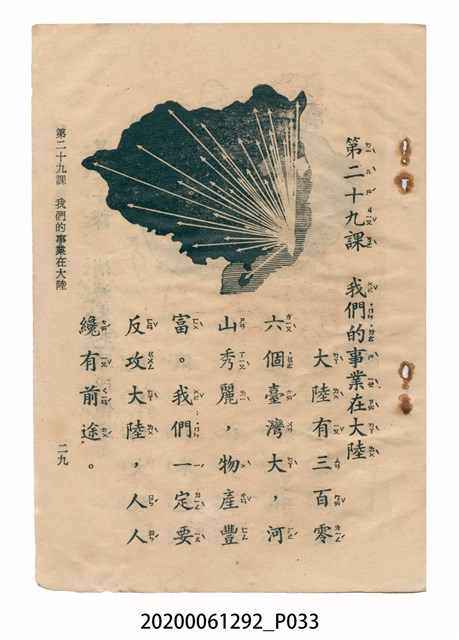 第二十九課 我們的事業在大陸
大陸有三百零
六個臺灣大，河
山秀麗，物產豐
富。我們一定要
反攻大陸，人人
纔有前途。
第二十九課 我們的事業在大陸
二九
20200061292_P033